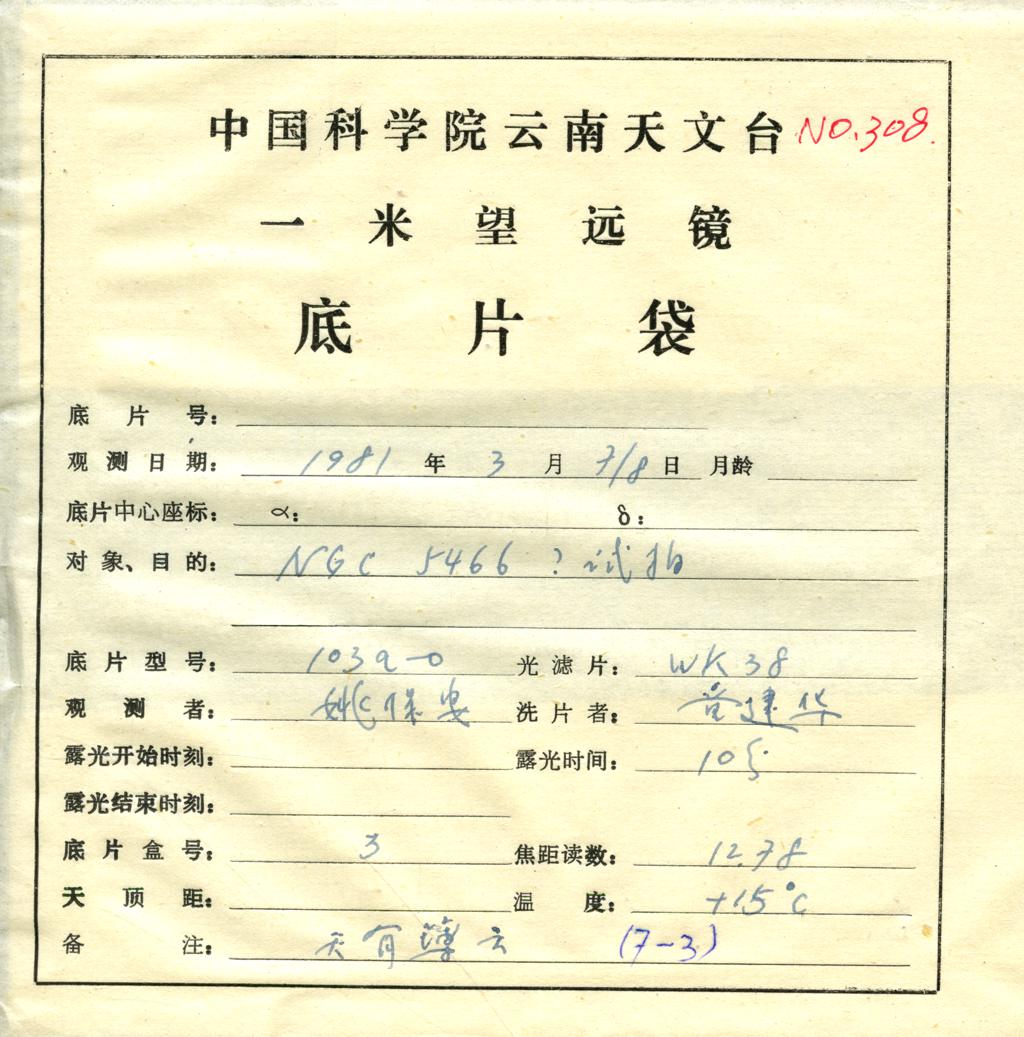 中国科学院云南天文台 NO.308.
一米望远镜
底片袋
底片号:
观测日期: 1981 年 3 月 7/8 日 月龄
底片中心座标: α: δ:
对象、目的: NGC 5466 ? 试拍
底片型号: 103a-O 光滤片: WK 38
观测者: 姚保安 洗片者: 建华
露光开始时刻: 露光时间: 10
露光结束时刻:
底片盒号: 3 焦距读数: 12.78
天顶距: 温度: +15°C
备注: 天有薄云 (7-3)